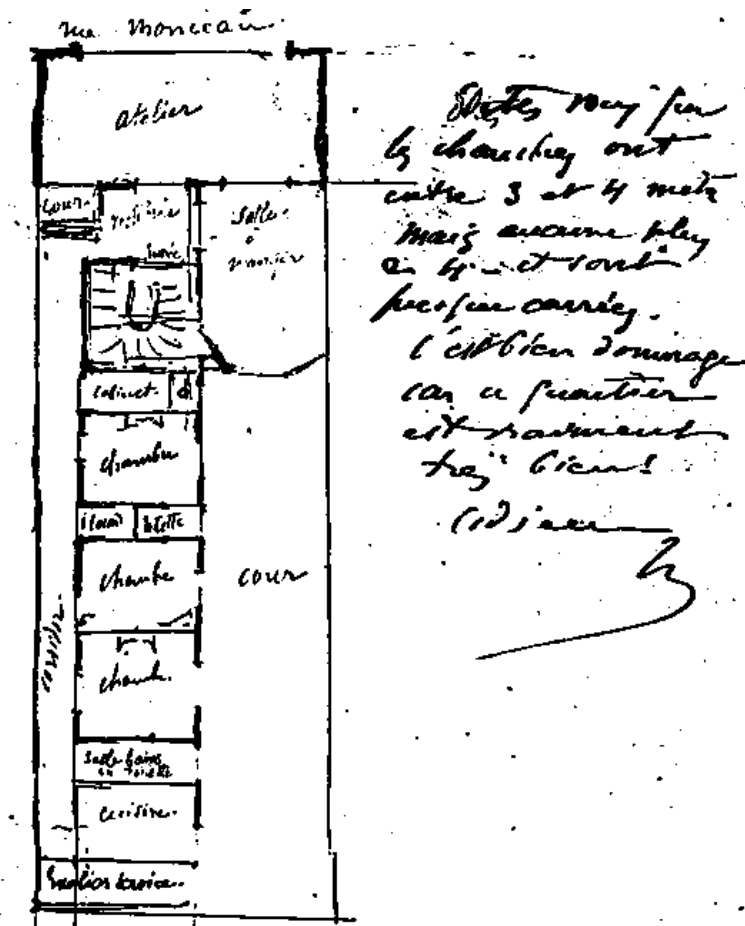 rue Monceau.
atelier
Cour
Salle
à
manger
Cabinet
chambre
toilette
chambre
cour
corridor
chambre
Salle bains
ou toilette
cuisine.
Escalier service.
que
les chambres ont
entre 3 et 4 mèt
mais aucune plus
à 4 et sont
presque carrées.
C'est bien dommage
car ce quartier
est vraiment
très bien!
adieu